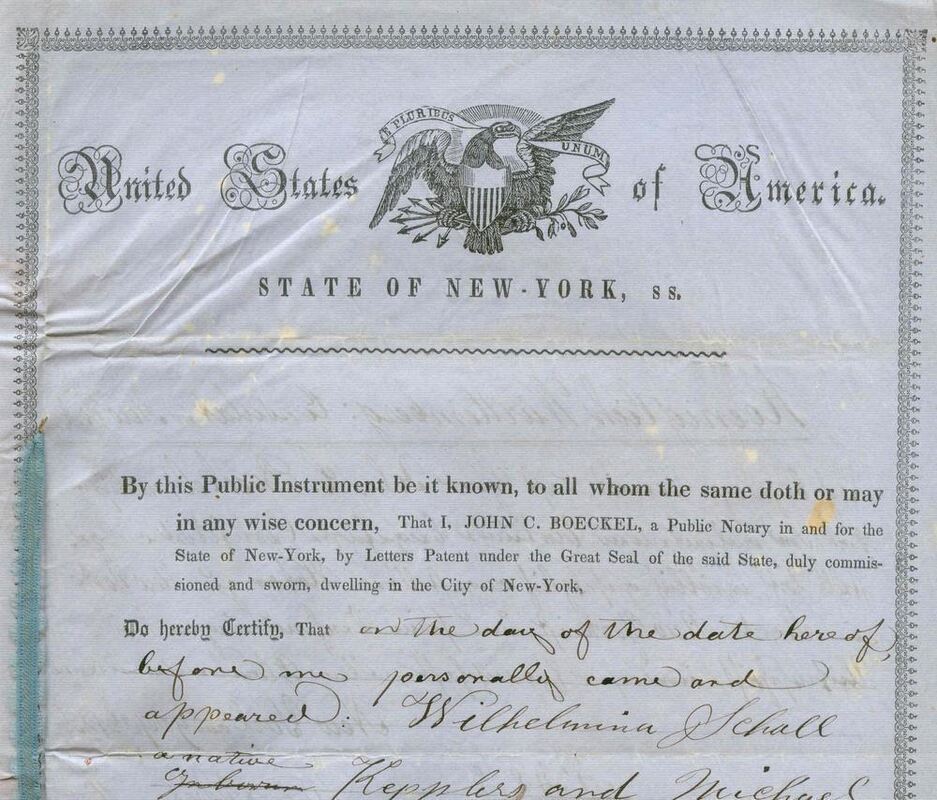 E PLURIBUS UNUM
United States of America.
STATE OF NEW-YORK, ss.
By this Public Instrument be it known, to all whom the same doth or may
in any wise concern, That I, JOHN C. BOECKEL, a Public Notary in and for the
State of New-York, by Letters Patent under the Great Seal of the said State, duly commis-
sioned and sworn, dwelling in the City of New-York,
Do hereby Certify, That on the day of the date hereof,
before me personally came and
appeared: Wilhelmina Schall
a native
Kepplers and Michael